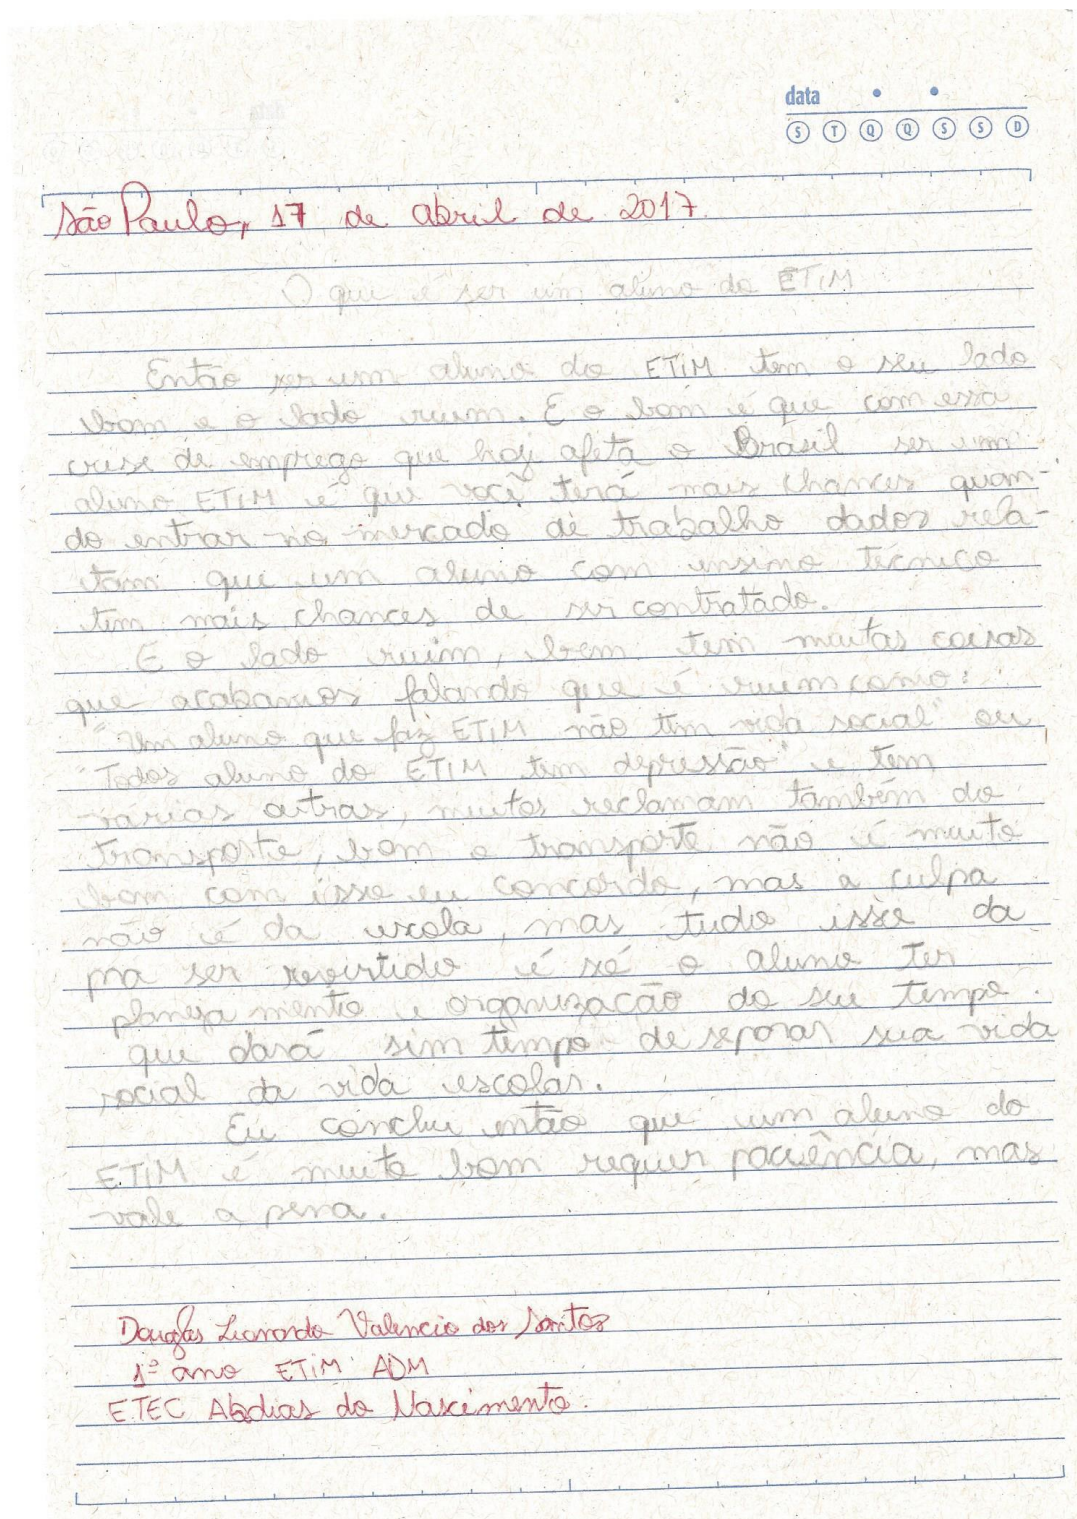 data
S T Q Q S S D
São Paulo, 17 de abril de 2017.
O que é ser um aluno do ETIM
Então ser um aluno do ETIM tem o seu lado
bom e o lado ruim. E o bom é que com essa
crise de emprego que hoj afeta o Brasil ser um
aluno ETIM é que você terá mais chances quan-
do entrar no mercado de trabalho dados rela-
tam que um aluno com ensino técnico
tem mais chances de ser contratado.
E o lado ruim, bem tem muitas coisas
que acabamos falando que é ruim como:
"Um aluno que faz ETIM não tem vida social" ou
"Todos aluno do ETIM tem depressão" e tem
várias outras, muitos reclamam também do
transporte, bom o transporte não é muito
bom com isso eu concordo, mas a culpa
não é da escola, mas tudo isso da
pra ser revertido é só o aluno ter
planeja mento e organização do seu tempo.
que dará sim tempo de separar sua vida
social da vida escolar.
Eu conclu então que um aluno do
ETIM é muito bom requer paciência, mas
vale a pena.
Douglas Leonardo Valencio dos Santos
1º ano ETIM ADM
ETEC Abdias do Nascimento.